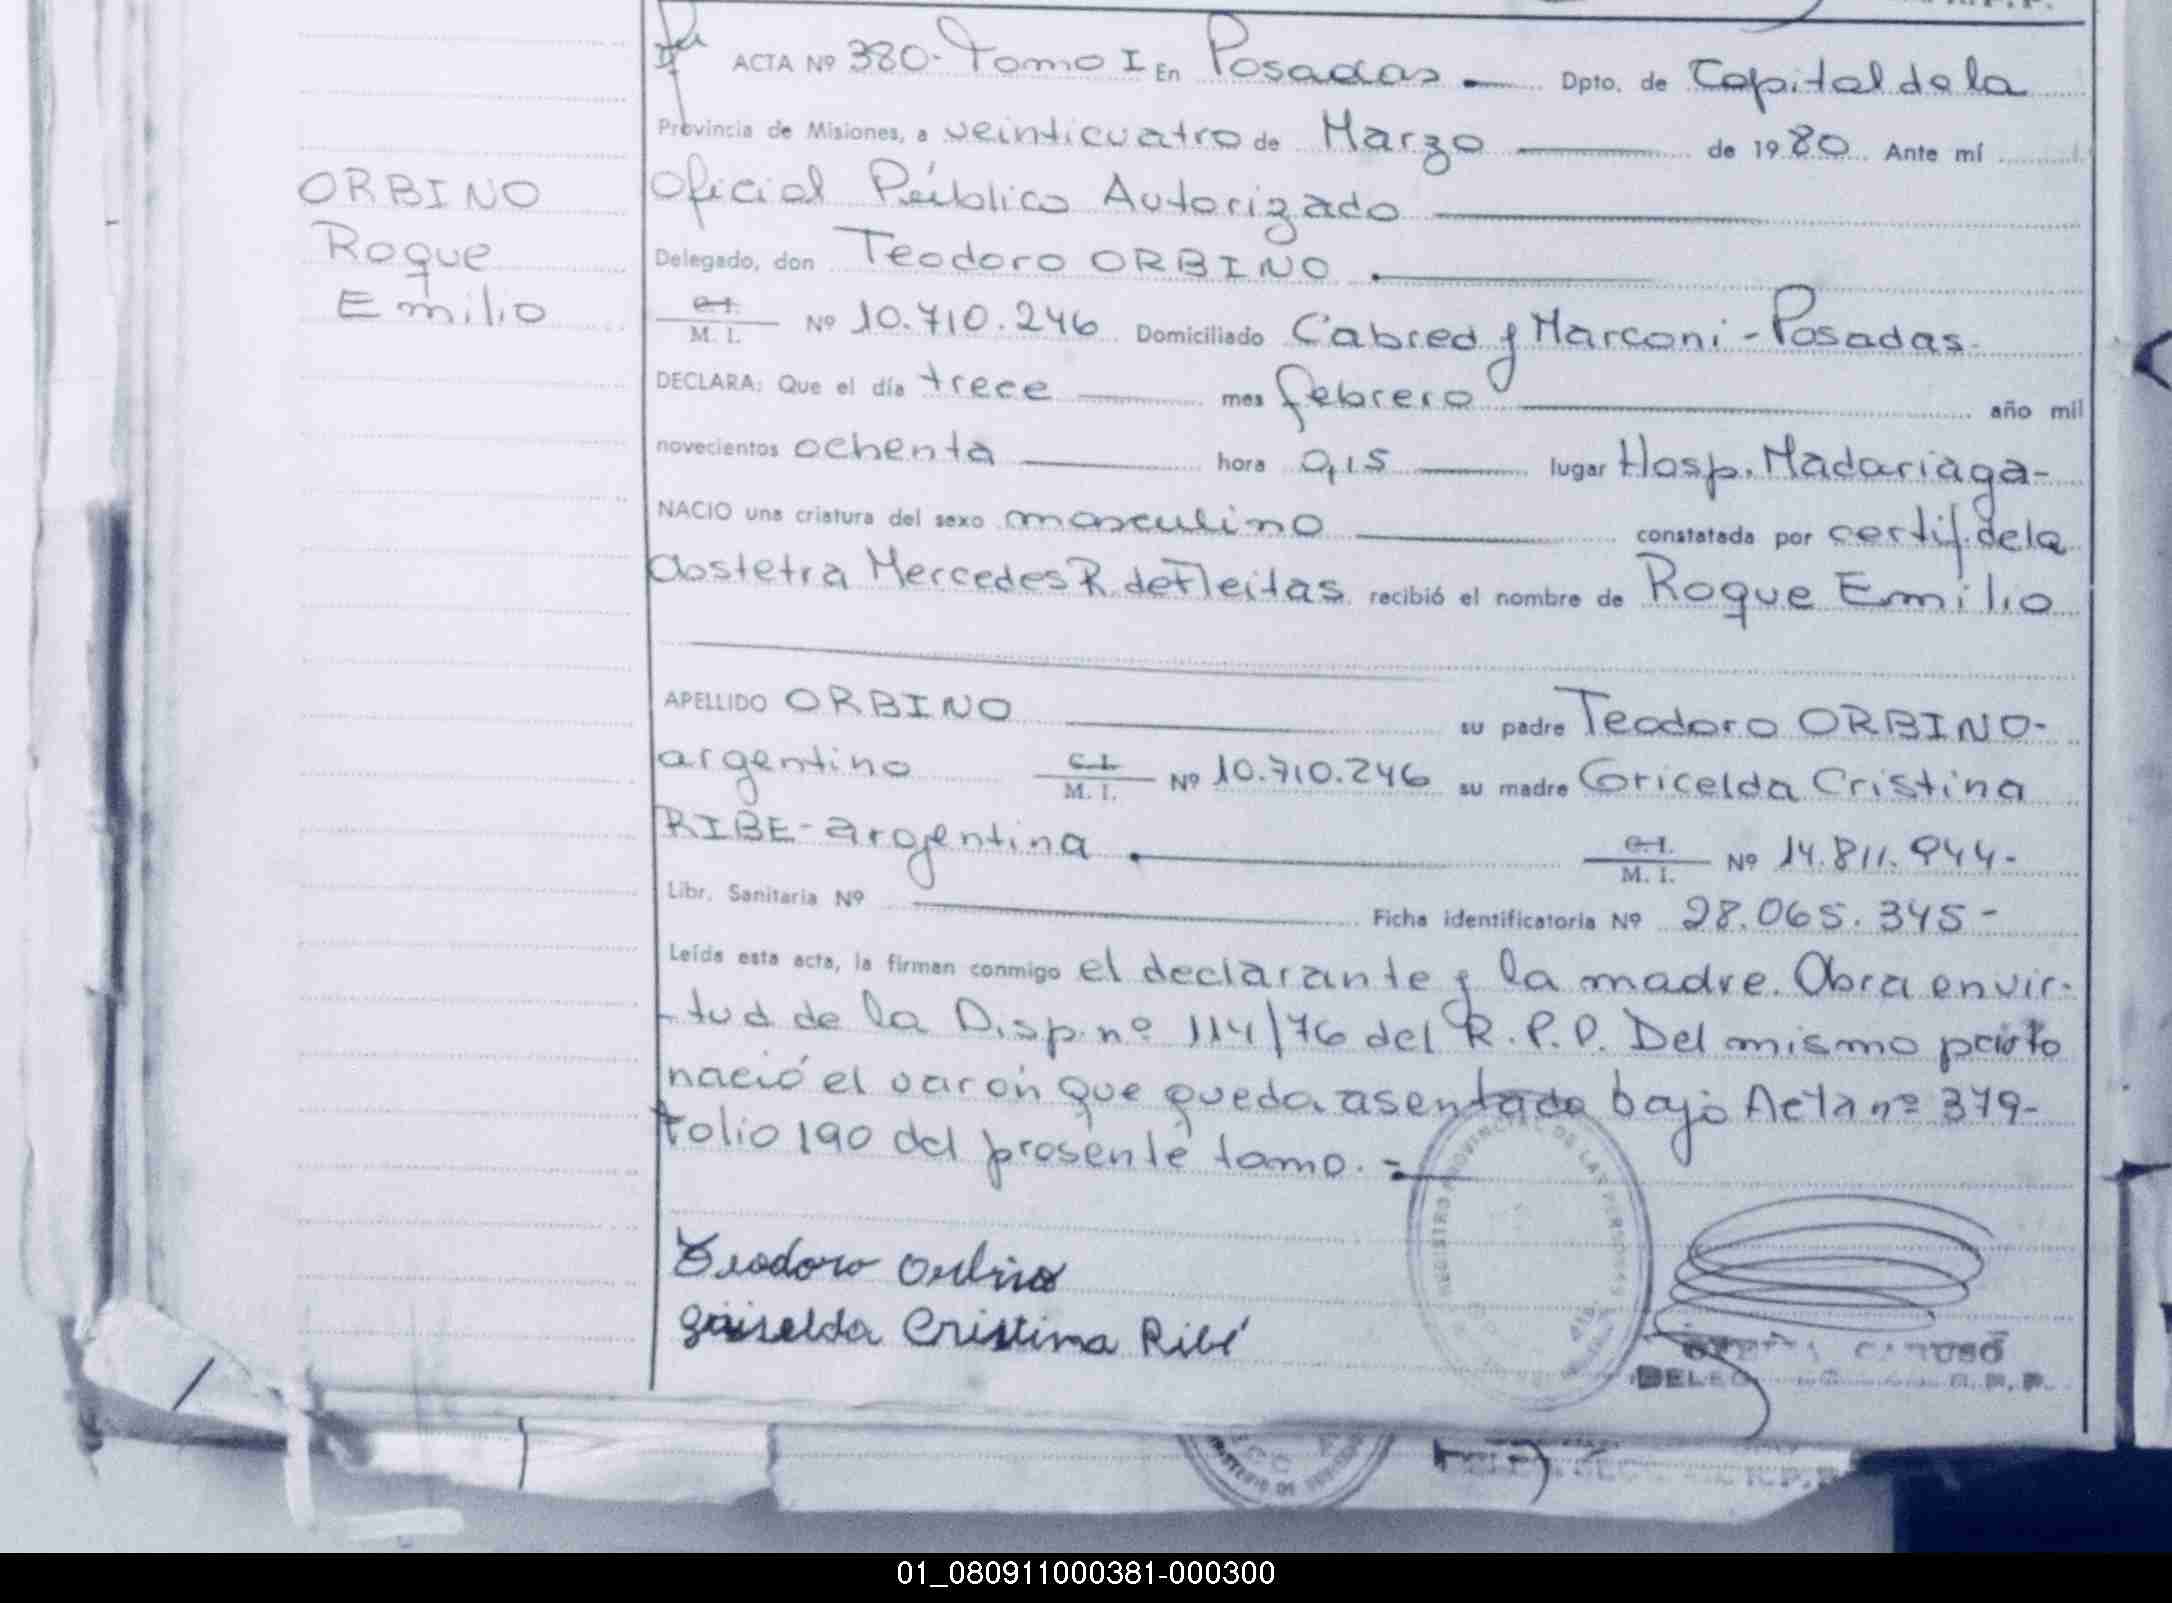 ACTA Nº 380- Tomo I En Posadas Dpto. de Capital de la
Provincia de Misiones, a veinticuatro de Marzo de 1980. Ante mí
Oficial Público Autorizado
ORBINO
Roque
Emilio
Delegado, don Teodoro ORBINO.
C.I.
M. I. Nº 10.710.246 Domiciliado Cabred y Marconi - Posadas-
DECLARA: Que el día trece mes febrero año mil
novecientos ochenta hora 0,15 lugar Hosp. Madariaga-
NACIO una criatura del sexo masculino constatada por certif. de la
Obstetra Mercedes R. de Fleitas recibió el nombre de Roque Emilio
APELLIDO ORBINO su padre Teodoro ORBINO-
argentino C.I. M. I. Nº 10.710.246 su madre Gricelda Cristina
RIBE- argentina. C.I. M. I. Nº 14.811.944-
Libr. Sanitaria Nº Ficha identificatoria Nº 28.065.345-
Leída esta acta, la firman conmigo el declarante y la madre. Obra en vir-
-tud de la Disp. nº 114/76 del R.P.P. Del mismo parto
nació el varón que queda asentado bajo Acta nº 379-
folio 190 del presente tomo.=
REGISTRO PROVINCIAL DE LAS PERSONAS
Teodoro Orbino
Griselda Cristina Ribé
01_080911000381-000300